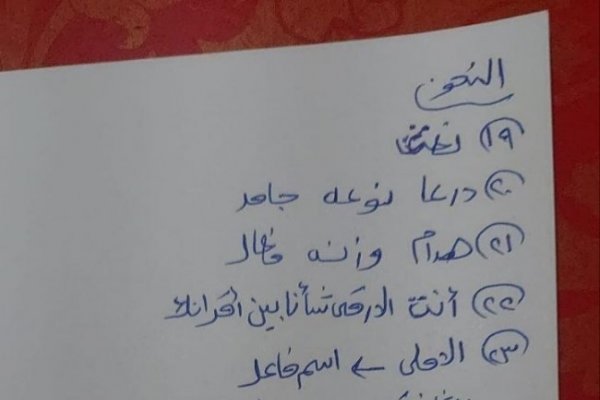 النحو
١٩
٢٠ درعا نوعه جامد
٢١ هدام وزنه فعال
٢٢ أنت الارقى شأنا بين أقرانك
٢٣ الاعلى ← اسم فاعل